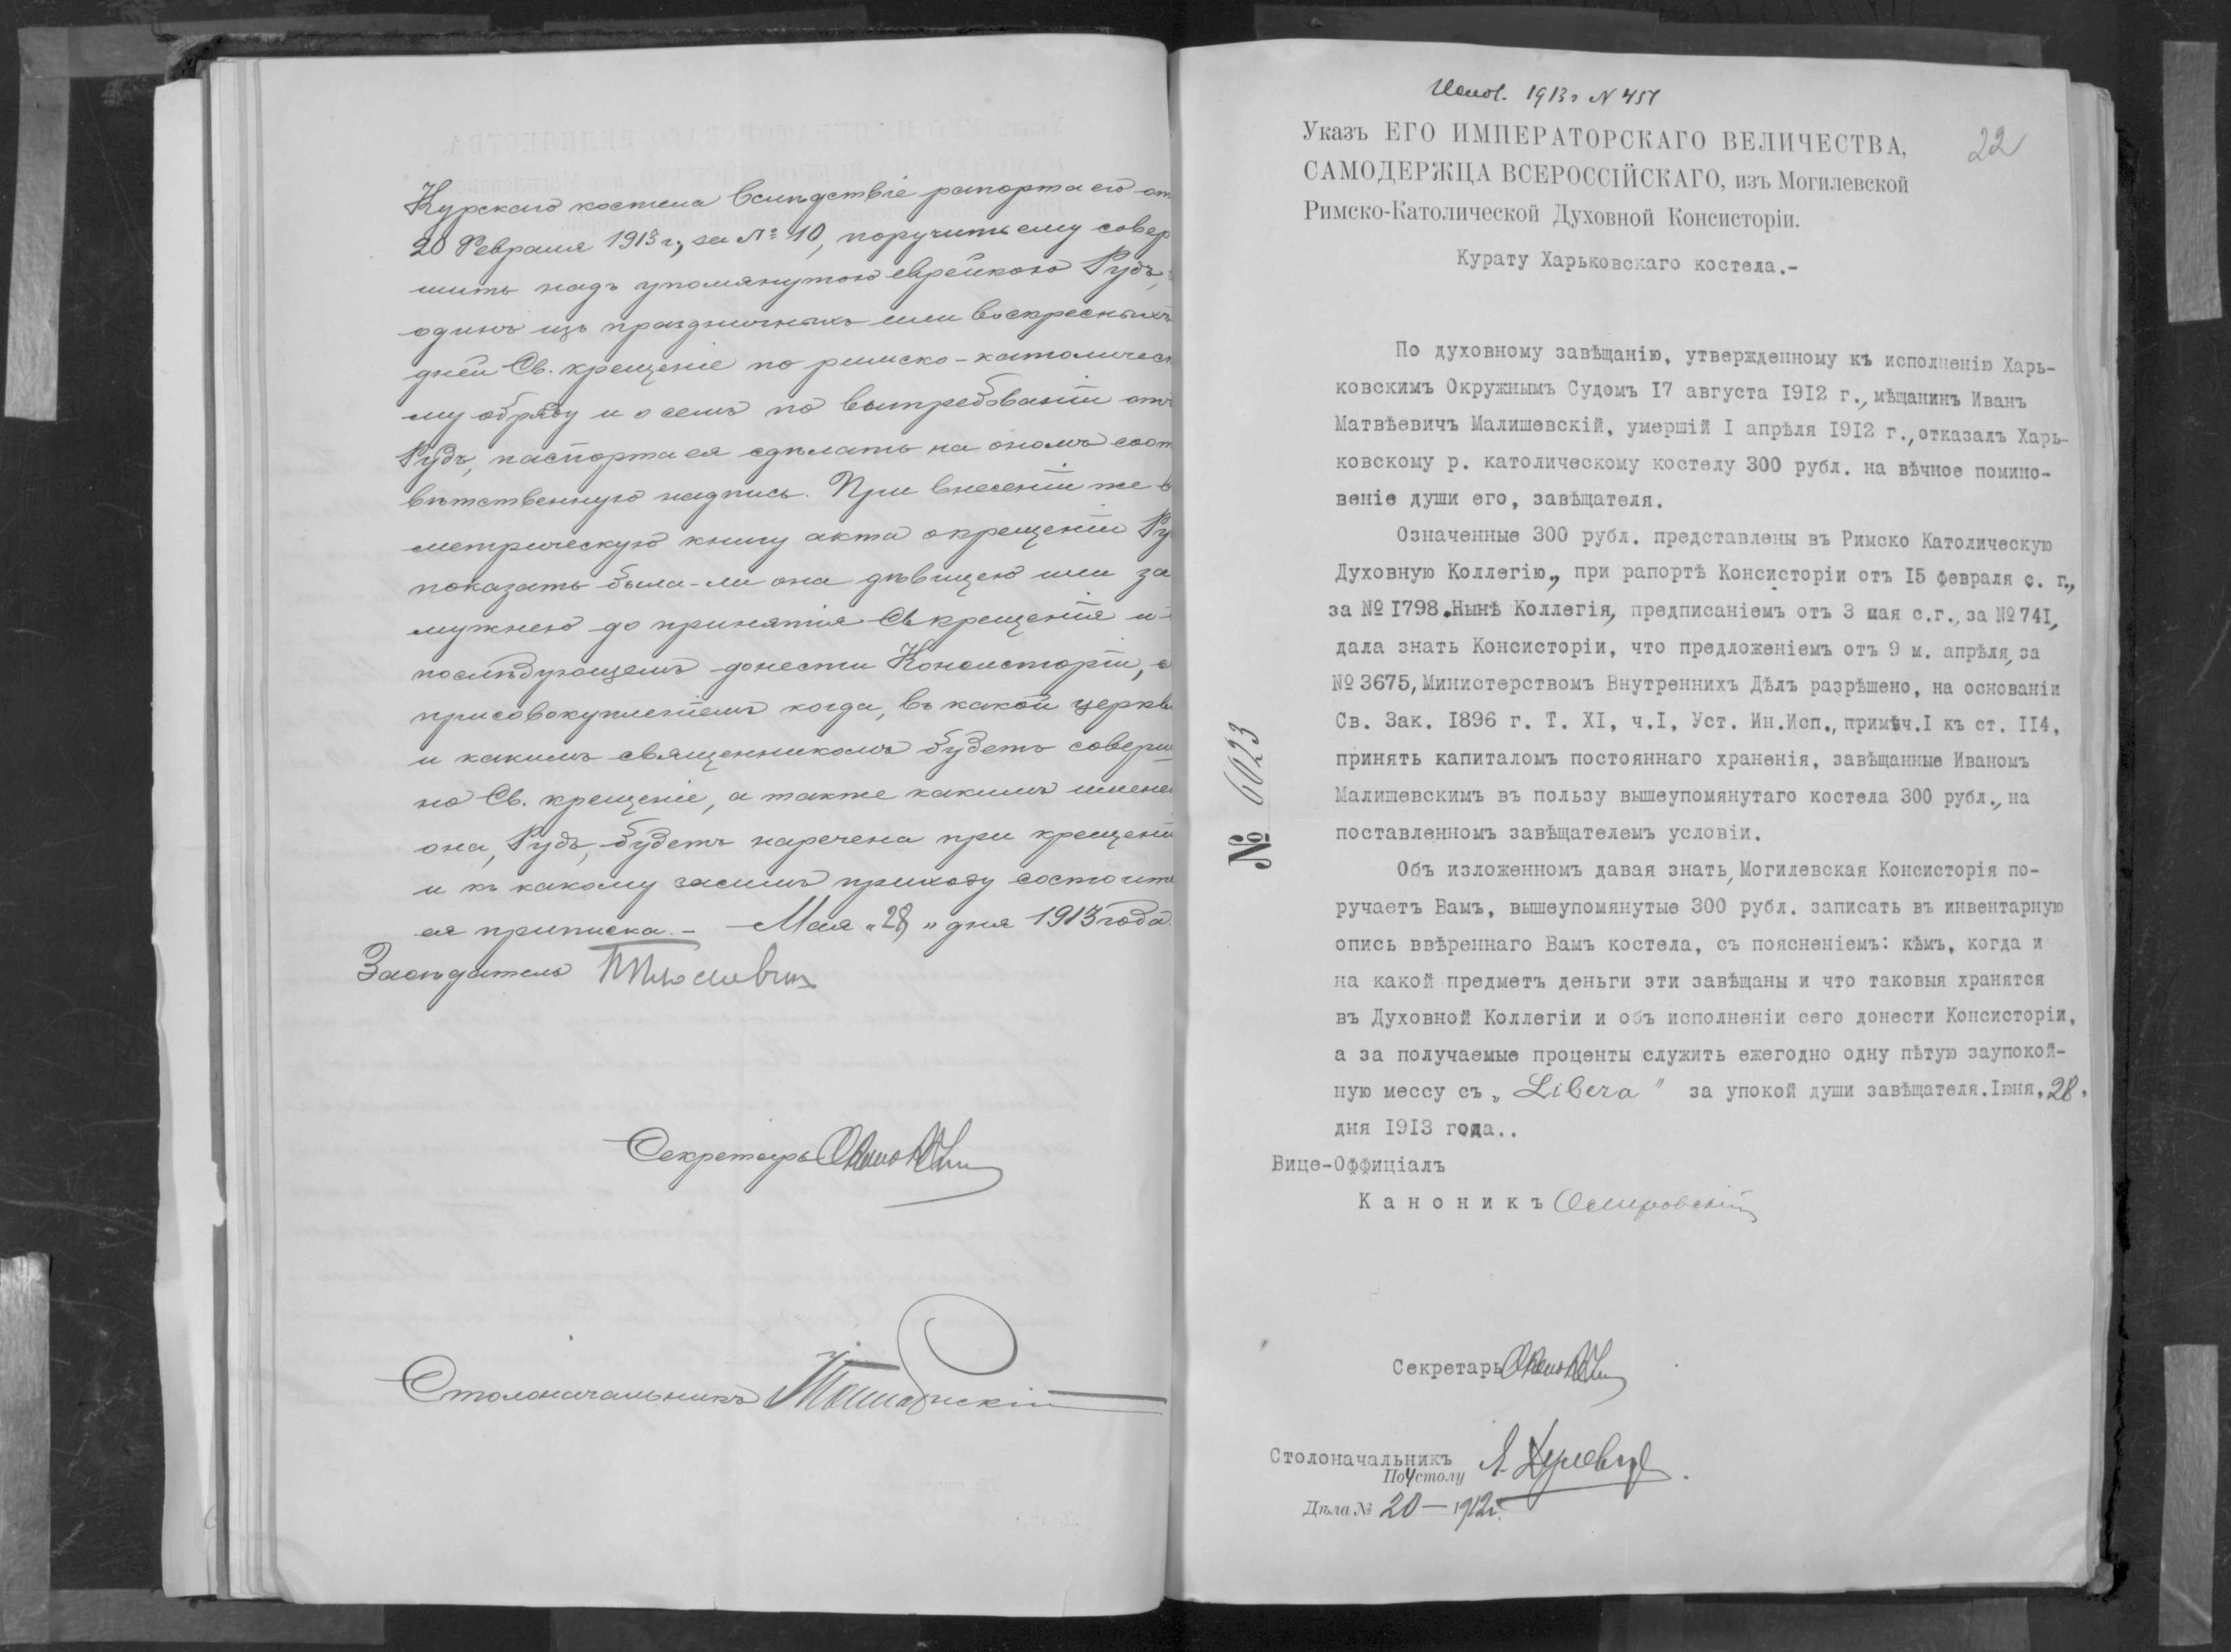 Курскаго костела вслѣдствіе рапорта его от
20 Февраля 1913 г., за № 10, поручить ему совер
шить надъ упомянутою еврейкою Рудь,
одинъ изъ праздничныхъ или воскресныхъ
дней Св. крещеніе по римско-католическ
му обряду и о семъ по вытребованіи отъ
Рудь, паспорта ея сдѣлать на ономъ соот
вѣтственную надпись. При внесеніи же в
метрическую книгу акта о крещеніи Ру
показать была-ли она дѣвицею или за
мужнею до принятія Св крещенія и о
послѣдующемъ донести Консисторіи, с
присовокупленіемъ когда, въ какой церкви
и какимъ священникомъ будетъ соверше
но Св. крещеніе, а также какимъ имене
она, Рудь, будетъ наречена при крещені
и къ какому засимъ приходу состоит
ея приписка. – Мая „28„ дня 1913 года.
Засѣдатель
Секретарь
Столоначальникъ
Испол. 1913 г N 451
22
Указъ ЕГО ИМПЕРАТОРСКАГО ВЕЛИЧЕСТВА,
САМОДЕРЖЦА ВСЕРОССІЙСКАГО, изъ Могилевской
Римско-Католической Духовной Консисторіи.
Курату Харьковскаго костела.-
По духовному завѣщанію, утвержденному къ исполненію Харь-
ковскимъ Окружнымъ Судомъ I7 августа I9I2 г., мѣщанинъ Иванъ
Матвѣевичъ Малишевскій, умершій I апрѣля I9I2 г., отказалъ Харь-
ковскому р. католическому костелу 300 рубл. на вѣчное помино-
веніе души его, завѣщателя.
Означенные 300 рубл. представлены въ Римско Католическую
Духовную Коллегію, при рапортѣ Консисторіи отъ I5 февраля с. г.,
за № I798. Нынѣ Коллегія, предписаніемъ отъ 3 мая с.г., за № 74I,
дала знать Консисторіи, что предложеніемъ отъ 9 м. апрѣля, за
№ 3675, Министерствомъ Внутреннихъ Дѣлъ разрѣшено, на основаніи
Св. Зак. I896 г. Т. XI, ч.I, Уст. Ин.Исп., примѣч.I къ ст. II4,
принять капиталомъ постояннаго храненія, завѣщанные Иваномъ
Малишевскимъ въ пользу вышеупомянутаго костела 300 рубл., на
поставленномъ завѣщателемъ условіи.
Объ изложенномъ давая знать, Могилевская Консисторія по-
ручаетъ Вамъ, вышеупомянутые 300 рубл. записать въ инвентарную
опись ввѣреннаго Вамъ костела, съ поясненіемъ: кѣмъ, когда и
на какой предметъ деньги эти завѣщаны и что таковыя хранятся
въ Духовной Коллегіи и объ исполненіи сего донести Консисторіи,
а за получаемые проценты служить ежегодно одну пѣтую заупокой-
ную мессу съ „Libera" за упокой души завѣщателя. Іюня, 28,
дня I9I3 года..
№ 6023
Вице-Оффиціалъ
Каноникъ
Секретарь
Столоначальникъ
По 4 столу
Дѣла № 20 – 1912 г.